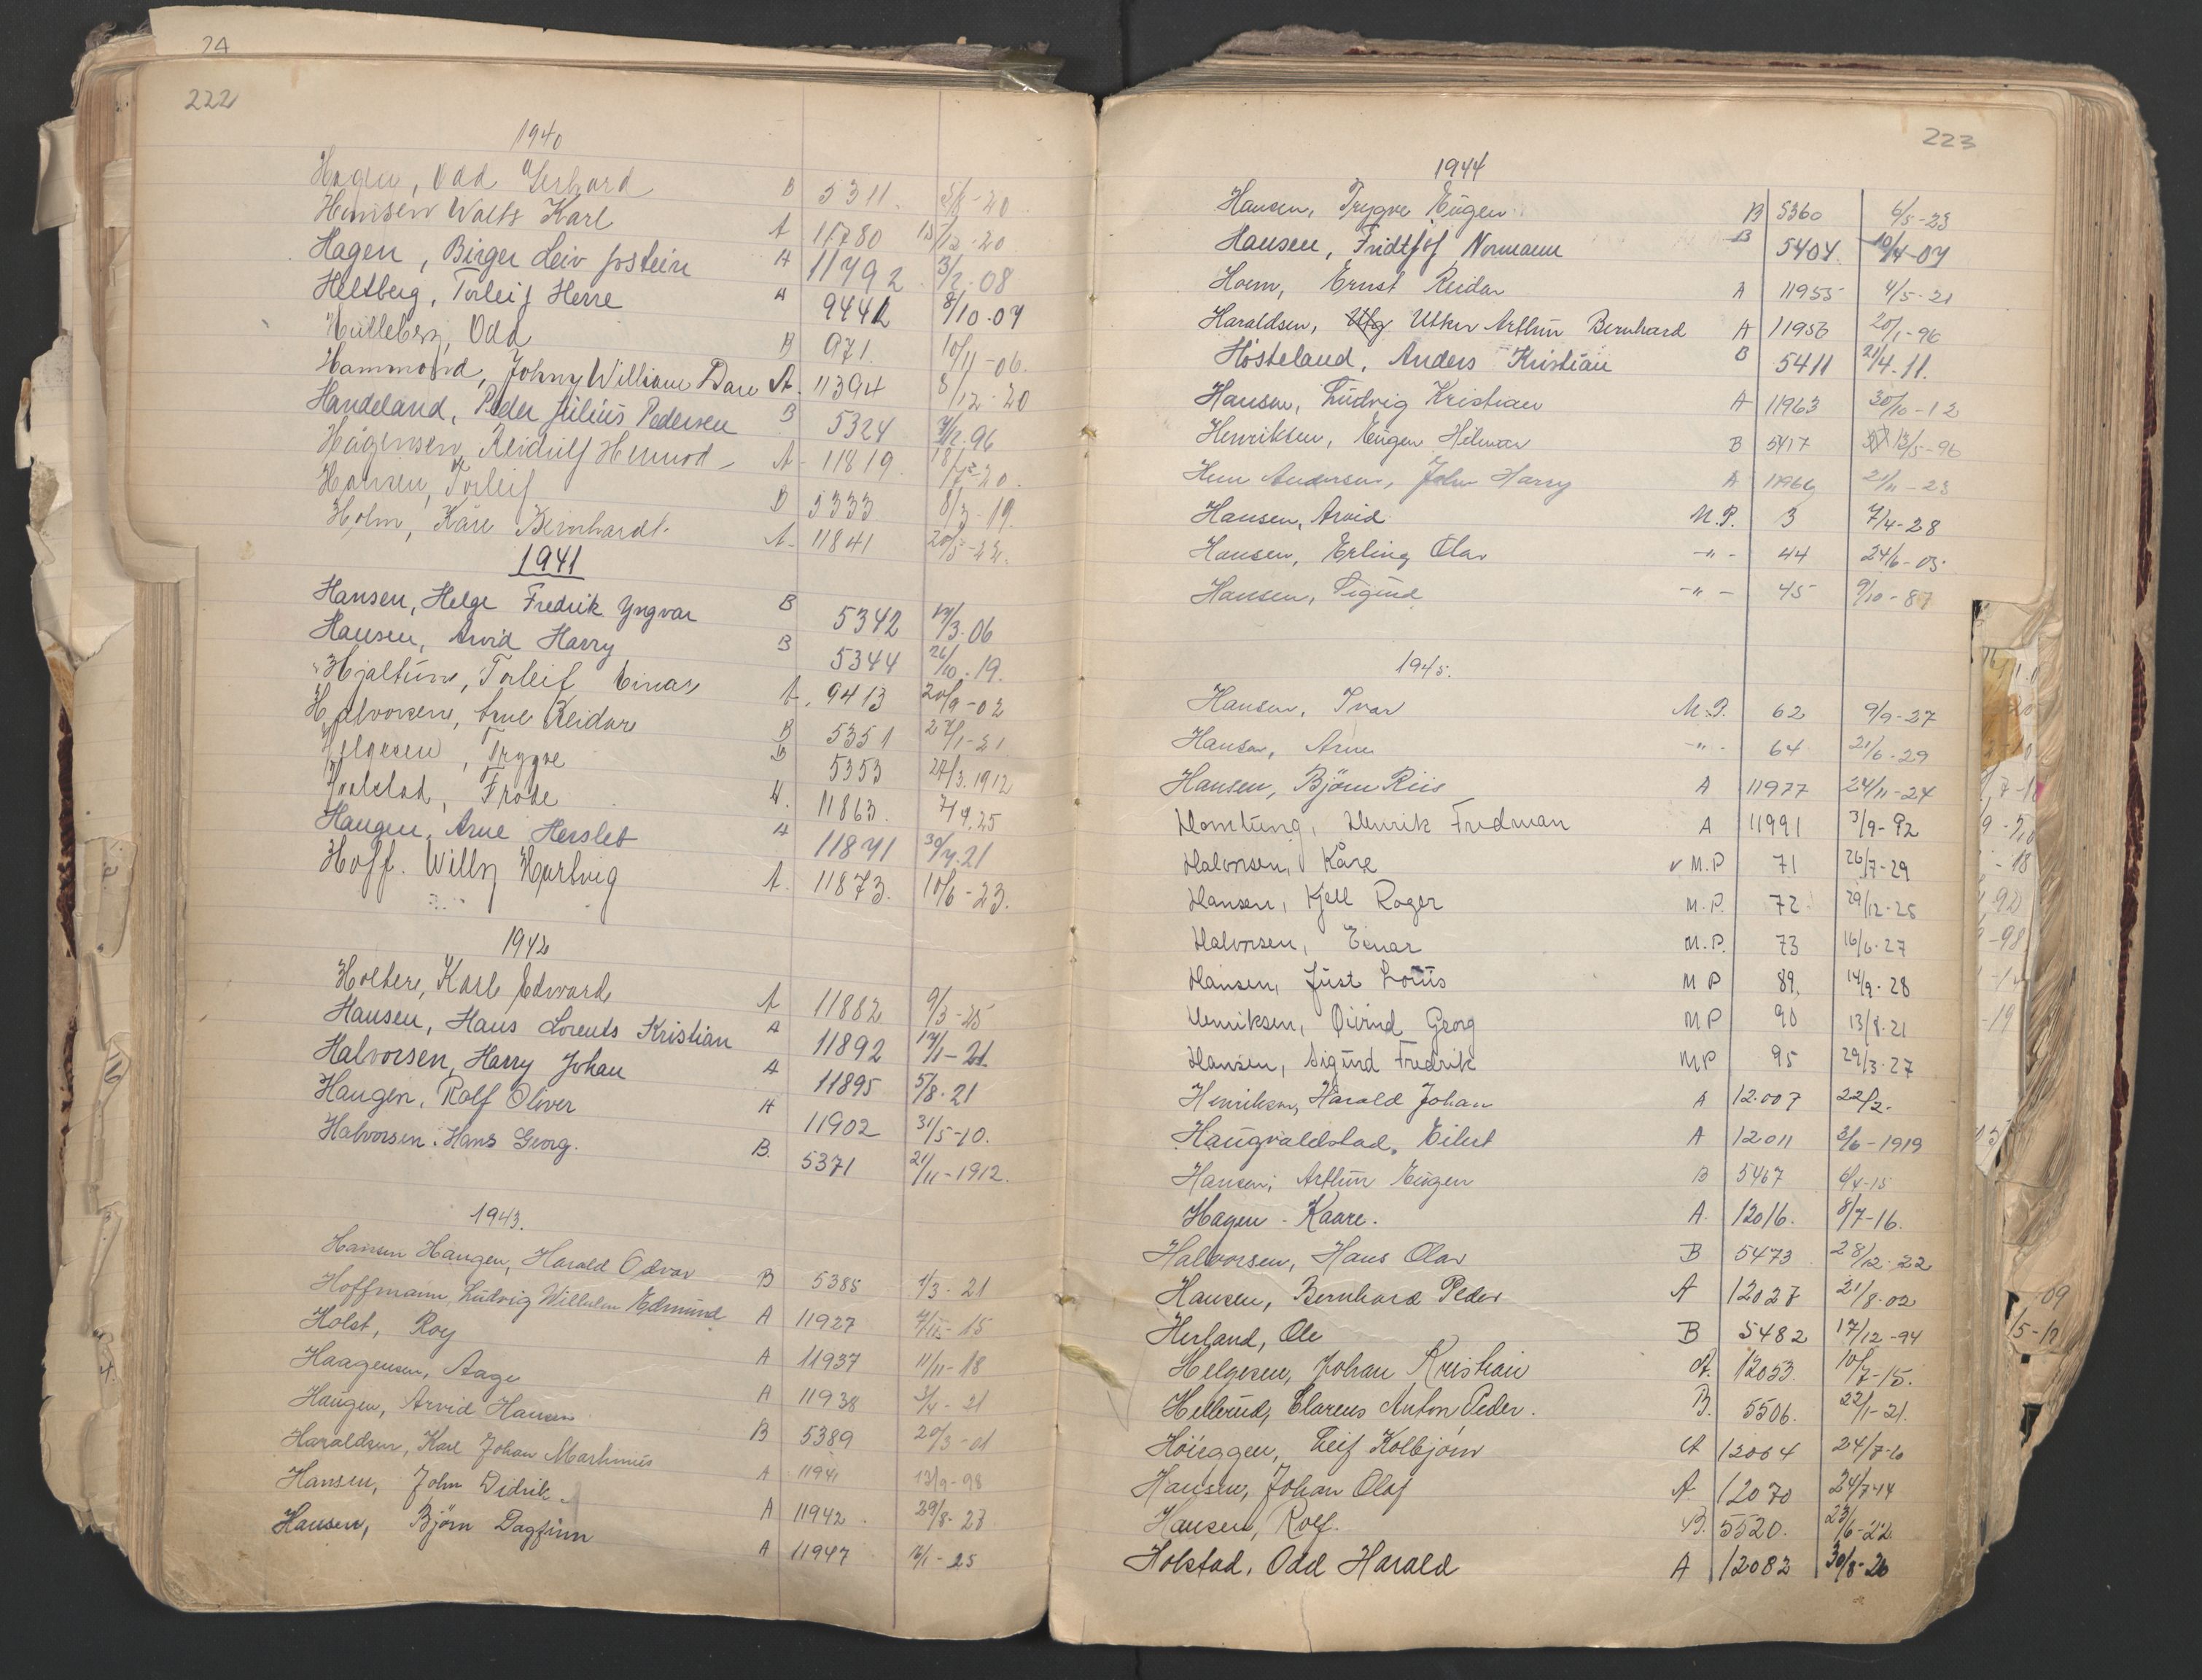 24
222
1940
Hagen, Odd Gerhard B 5311. 5/8-20
Hansen Walts Karl A 11780 15/12-20
Hagen, Birger Leiv Jostein A 11792 3/2-08
Heltberg, Torleif Herre A 9442 8/10-07
Hulleberg, Odd B 971. 10/11-06.
Hammond, Johny William Dare A. 11394 5/12-20
Handeland, Peder Julius Pedersen B 5324 7/12.96
Hågensen, Reidulf Hermod A- 11819. 18/7-20.
Hansen, Torleif B 5333 8/3-19.
Holm, Kåre Bernhardt. A- 11841 20/5-22.
1941
Hansen, Helge Fredrik Yngvar B 5342 17/3.06
Hansen, Arvid Harry B 5344 26/10.19.
Hjaltun, Torleif Einar A. 9413 20/9-02
Halvorsen, Arne Reidar B 5351 27/1-21
Helgesen, Trygve B 5353 27/3.1912
Holstad, Frode A. 11863. 7/9.25
Haugen, Arne Herslet A 11871 30/7.21
Hoff. Willy Hartvig A. 11873. 10/6-23.
1942
Holtere, Karl Edvard A 11882 9/3-25
Hansen, Hans Lorents Kristian A 11892 17/1-21
Halvorsen, Harry Johan A 11895 5/8.21
Haugen, Rolf Oliver A 11902 31/5-10.
Halvorsen. Hans Georg. B. 5371 21/11-1912.
1943.
Hansen Haugen, Harald Odvar B 5385 1/3-21
Hoffmann, Ludvig Wilhelm Edmund A 11927 15
Holst, Roy A 11937 11/11-18
Haagensen, Aage A 11938 3/4-21
Haugen, Arvid Hansen B 5389 20/3-01
Haraldsen, Karl Johan Martinius A 11941 13/9-98
Hansen, John Didrik A 11942. 29/8-23
Hansen, Björn Dagfinn A 11947 16/1-25
223
1944
Hansen, Trygve Eugen B 5360 6/5-23
Hansen, Fridtjof Normann B 5404. 10/4-07
Hoem, Ernst Reidar A 11955 4/5-21
Haraldsen, Utker Arthur Bernhard A 11956 20/1-96
Hösteland, Anders Kristian B 5411 21/4.11.
Hansen, Ludvig Kristian A 11963 30/10-12
Henriksen, Eugen Hilmar B 5417 13/5-96
Hem Andersen, John Harry A 11966 21/11-23
Hansen, Arvid M.P. 3 7/4-28
Hansen, Erling Olav -"- 44 24/6-05.
Hansen, Sigurd -"- 45 9/10-87
1945.
Hansen, Ivar M.P. 62 9/9-27
Hansen, Arne -"- 64 21/6-29
Hansen, Björn Riis A 11977 24/11-24
Homtung, Henrik Fredman A 11991 3/9-92
Halvorsen, Kåre v M.P 71 26/7-29
Hansen, Kjell Roger M.P. 72. 29/12-25
Halvorsen, Einar M.P. 73 16/6-27
Hansen, Just Louis M P 89. 14/9-28
Henriksen, Öivind Georg M P 90 13/8-21
Hansen, Sigurd Fredrik M P 95 29/3-27
Henriksen, Harald Johan A 12.007 22/2-
Haugvaldstad, Eilert A 12011 3/6-1919
Hansen, Arthur Eugen B 5467 6/4-15
Hagen - Kaare. A. 12016. 8/7-16.
Halvorsen, Hans Olav B 5473 28/12-22
Hansen, Bernhard Peder A 12027 21/8-02
Herland, Ole B 5482 17/12-94
Helgesen, Johan Kristian A. 12053. 10/7-15.
Hellerud, Clarens Anton Peder. B. 5506. 22/1-21.
Höiseggen, Leif Kolbjörn A 12064 24/7-10
Hansen, Johan Olaf A 12070 24/7-14
Hansen, Rolf. B. 5520. 23/6-22
Holstad, Odd Harald A 12082 30/8-26